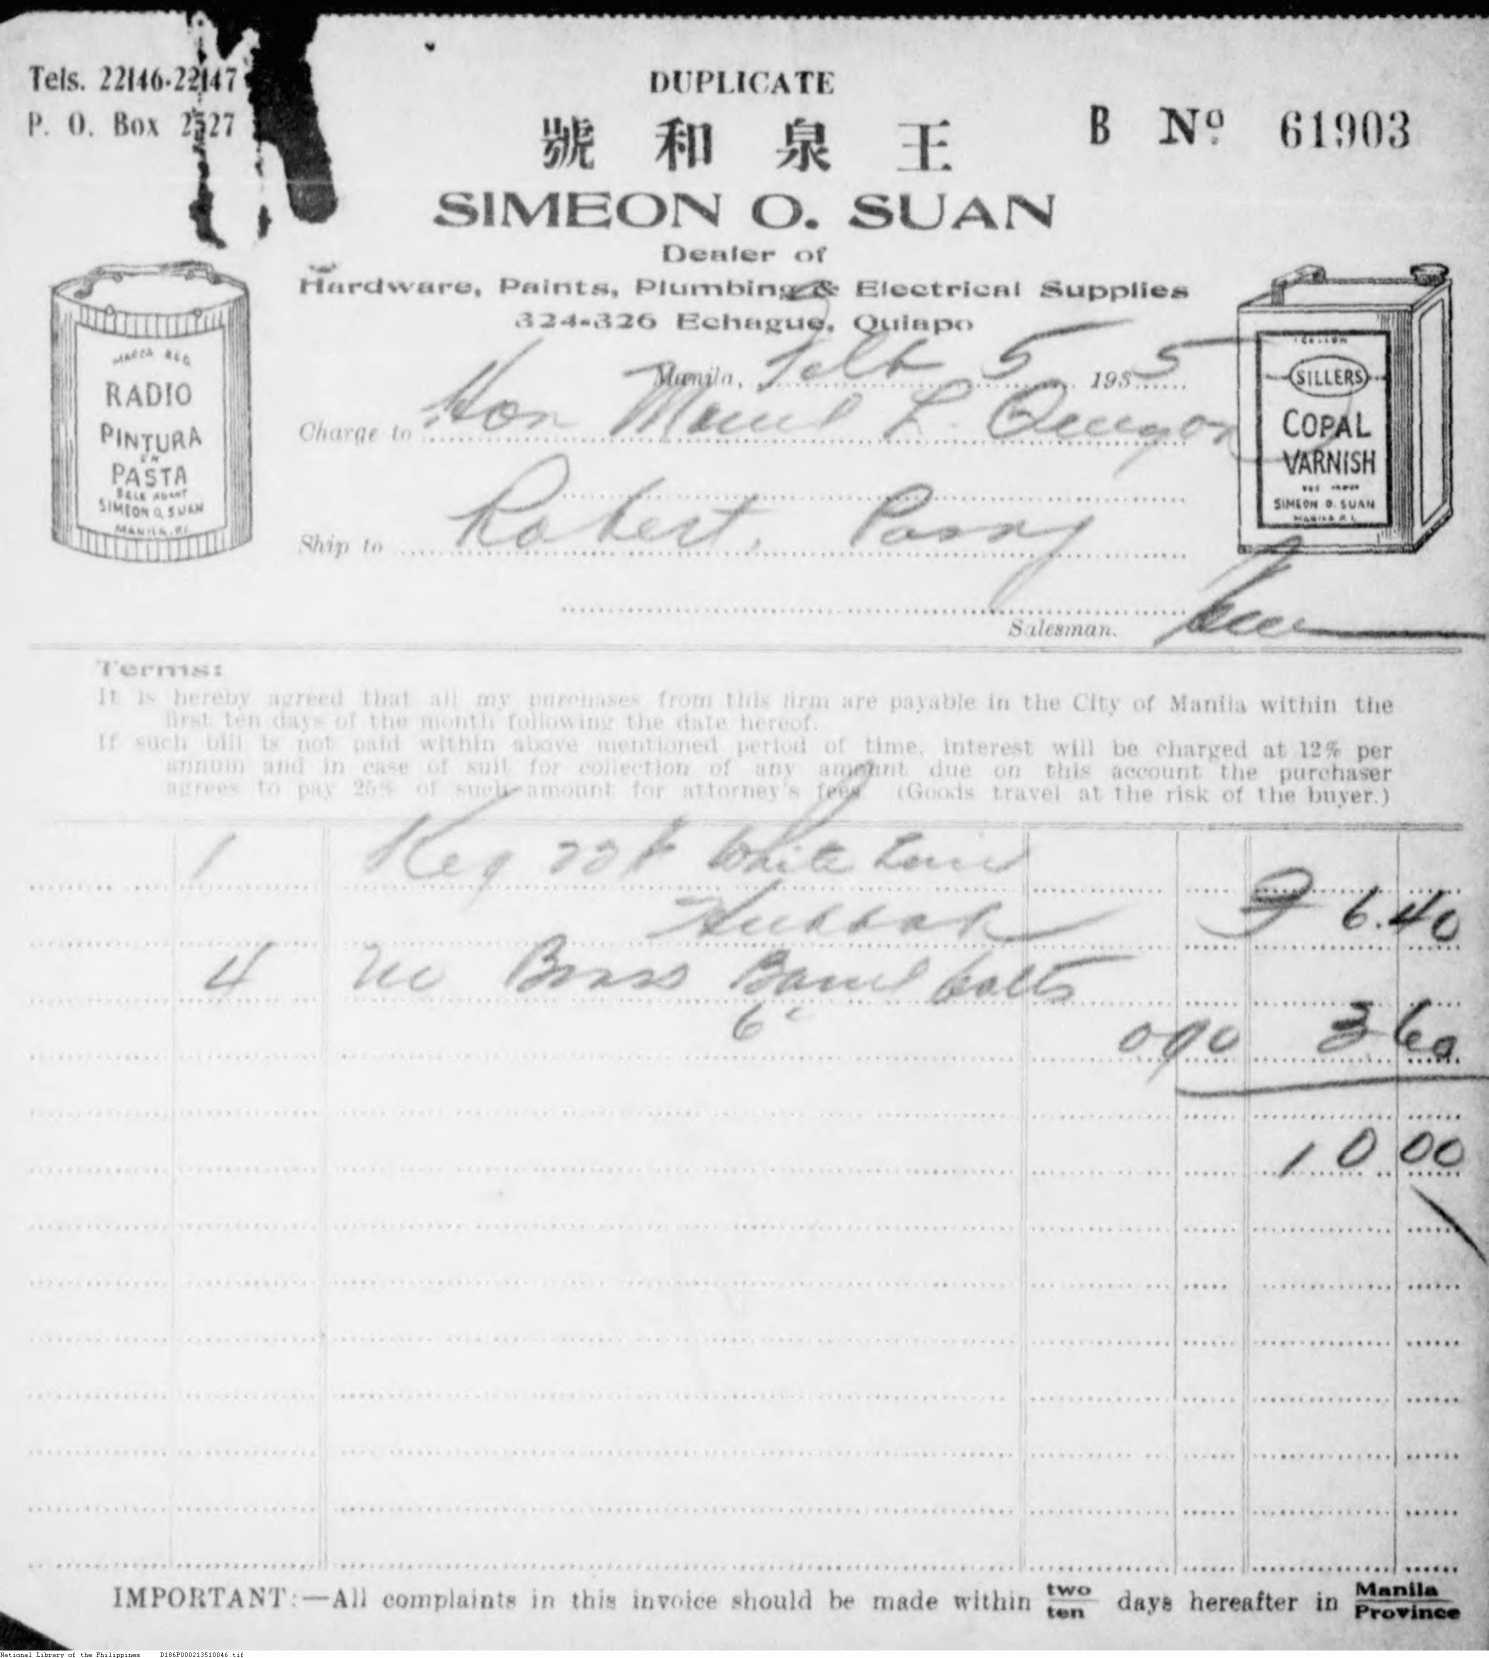 Tels. 22146-22147
P. O. Box 2527
DUPLICATE
B Nº 61903
號和泉王
SIMEON O. SUAN
Dealer of
Hardware, Paints, Plumbing & Electrical Supplies
324-326 Echague, Quiapo
MARCA REG
RADIO
PINTURA
EN
PASTA
SOLE AGENT
SIMEON O. SUAN
MANILA, P.I.
1 GALLON
SILLERS
COPAL
VARNISH
SIMEON O. SUAN
MANILA P. I.
Manila, Feb 5 1935
Charge to Hon Manuel L. Quezon
Ship to Robert, Pasay
Salesman.
Terms:
It is hereby agreed that all my purchases from this firm are payable in the City of Manila within the
first ten days of the month following the date hereof.
If such bill is not paid within above mentioned period of time, interest will be charged at 12% per
annum and in case of suit for collection of any amount due on this account the purchaser
agrees to pay 25% of such amount for attorney's fees. (Goods travel at the risk of the buyer.)
1 Keg White Lead
₱ 6.40
4 Brass Barrel bolts
6" 090 3 60
10 00
IMPORTANT:—All complaints in this invoice should be made within two ten days hereafter in Manila Province
National Library of the Philippines D186P000213510046.tif